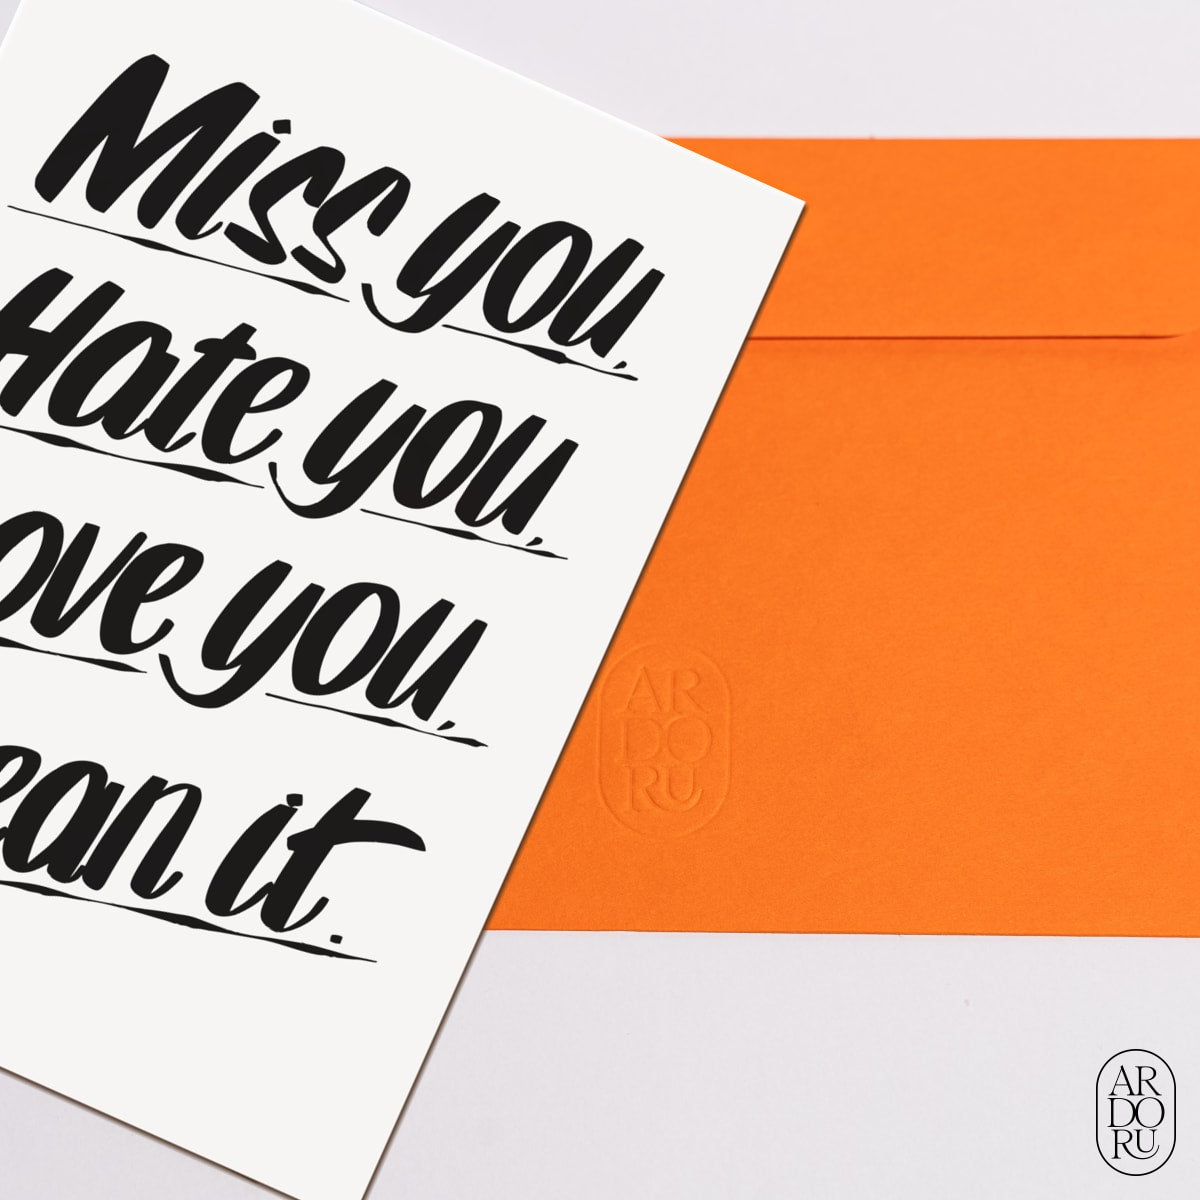 Miss you,
Hate you,
ove you,
ean it.
AR
DO
RU
AR
DO
RU